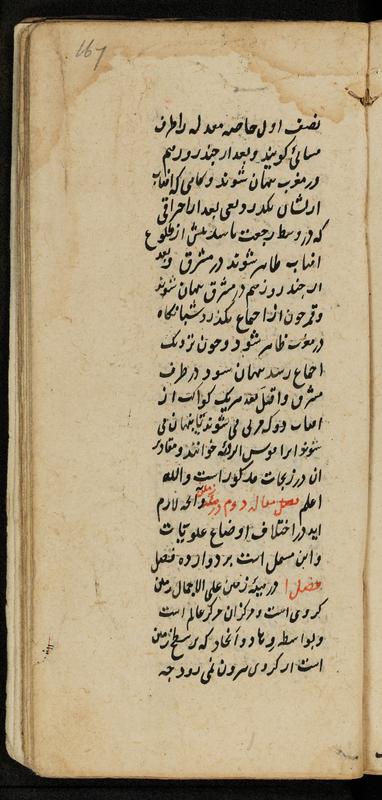 167
نصف اول حاصه معدله را طرف
مسائی کویند و بعد از چند روز هم
در مغرب پنهان شوند و کاهی که افتاب
از ایشان بکذرد یعنی بعد از احراقی
که در وسط رجعت باشد پیش از طلوع
افتاب ظاهر شوند در مشرق و بعد
از چند روز هم در مشرق پنهان شوند
و قمر چون از اجتماع بکذرد شبانکاه
در مغرب ظاهر شود و چون نزدیک
اجتماع رسد پنهان شود در طرف
مشرق و اقل بعد هریک کواکب از
افتاب دو که مرئی می شوند یا پنهان می
شوند انرا قوس الرؤیه خوانند و مقادیر
ان در زیجات مذکور است والله
اعلم فصل مقاله دوم در هیئه زمین و آنچه لازم
اید در اختلاف اوضاع علویات
و این مشتمل است بر دوازده فصل
فصل ا در هیئه زمین علی الاجمال زمین
کروی است و مرکز ان مرکز عالم است
و بواسطه وهاد و انجاد که بر سطح زمین
است از کروی بیرون نمی رود چه